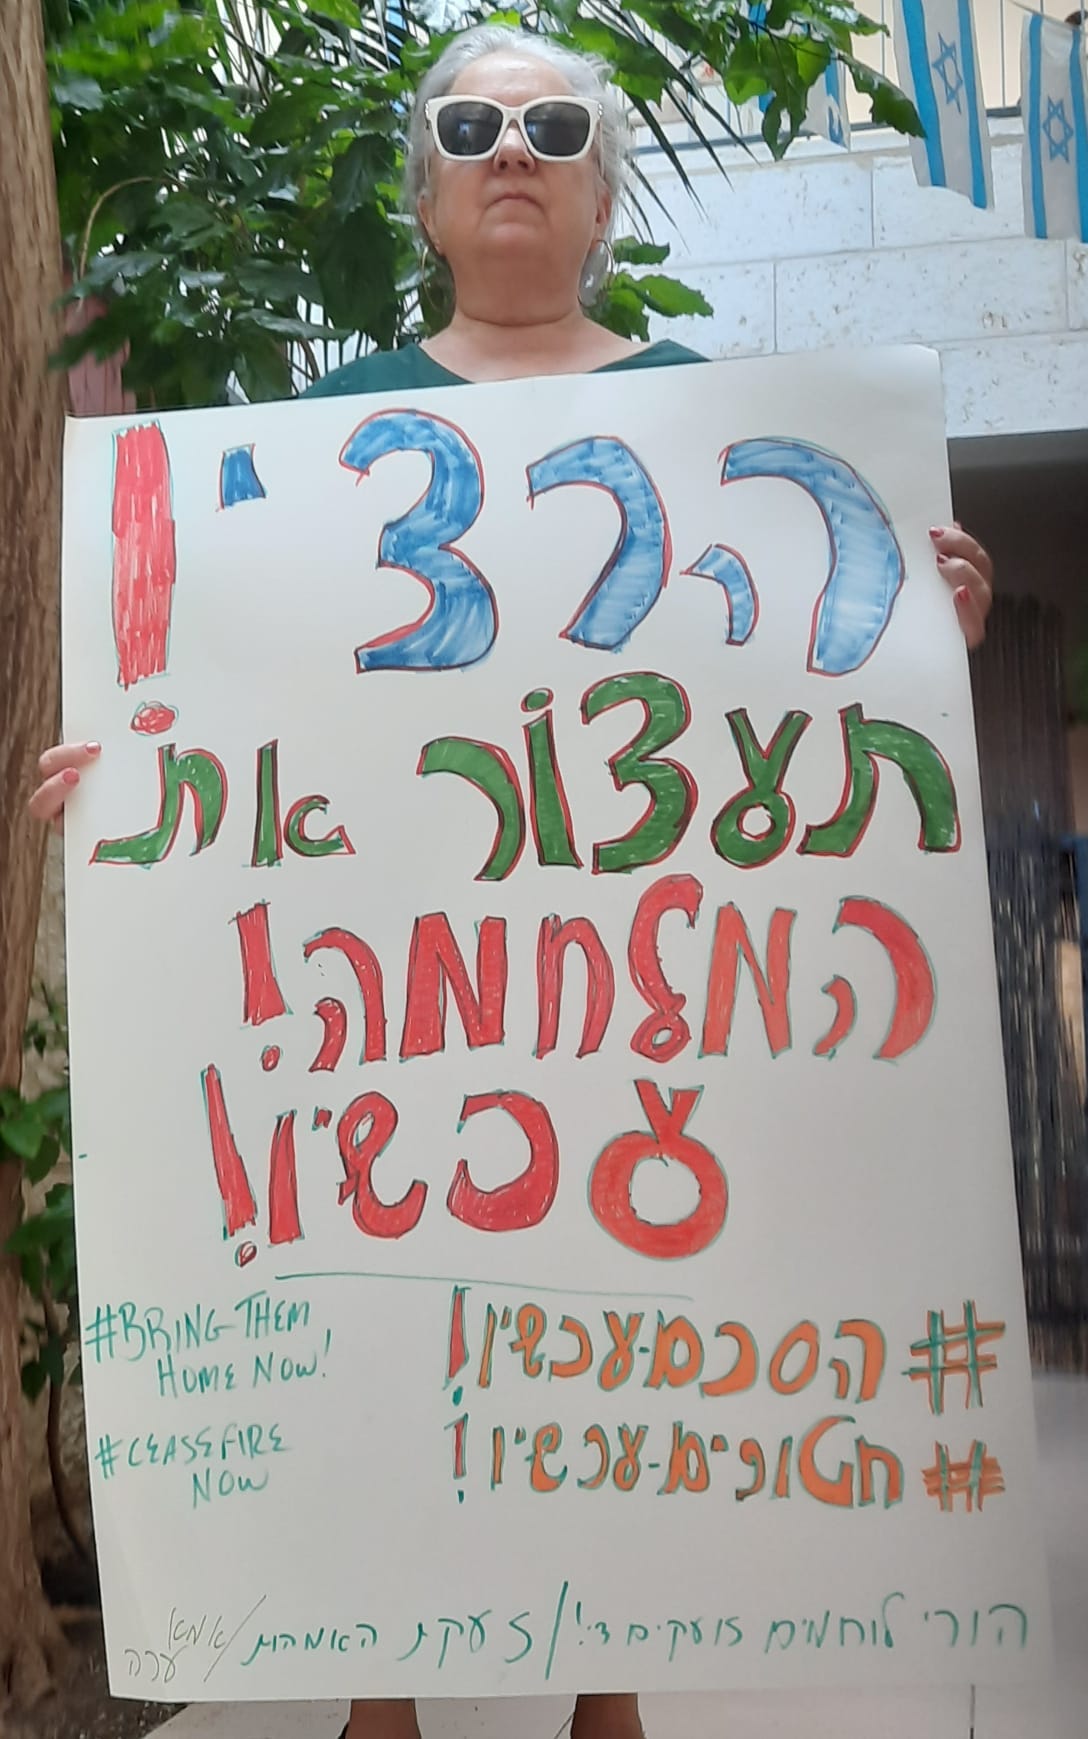 הרצי!
תעצור את
המלחמה!
עכשיו!
#הסכם-עכשיו!
#חטופים-עכשיו!
#BRING THEM
HOME NOW!
#CEASEFIRE
NOW
הורי לוחמים זועקים די!/זעקת האמהות/אמא
ערה